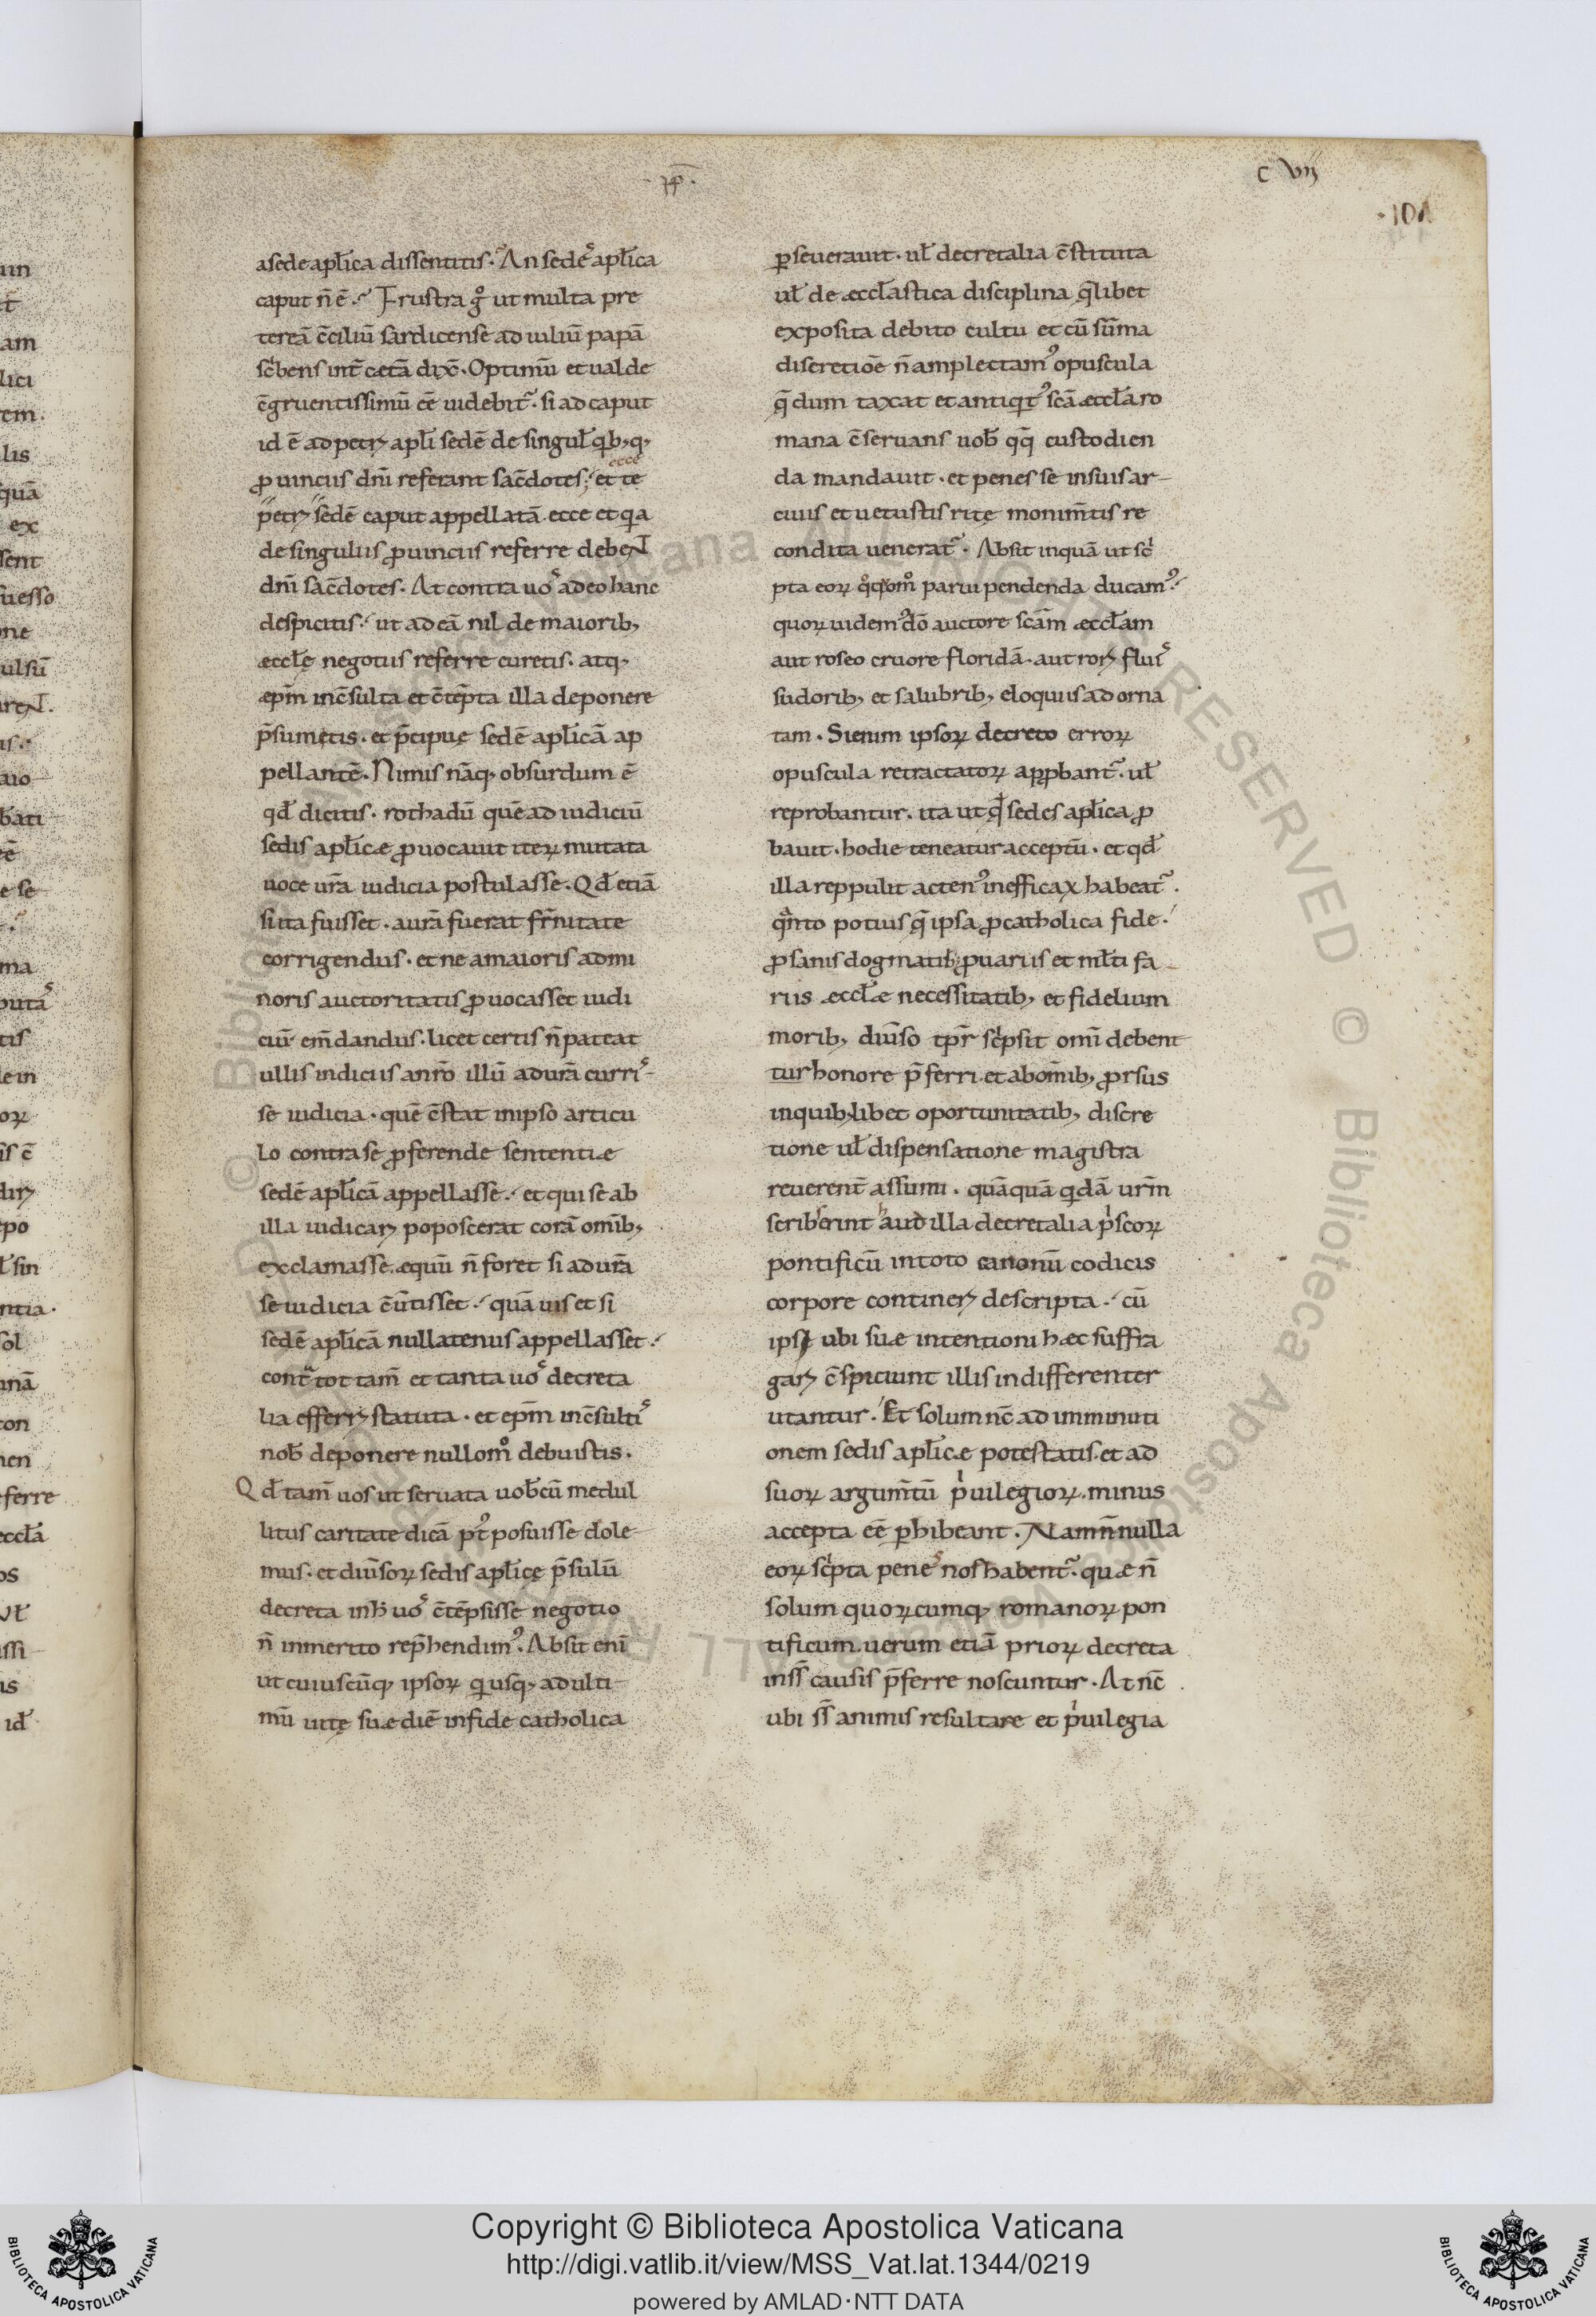 c vij
·101
a sede apl̄ica dissentitis. An sedes apl̄ica
caput n̄ ē. Frustra gͦ ut multa pre
tereā c̄ciliū sardicense ad iuliū papā
sc̍bens int̄ cetā dix̄. Optimū et ualde
c̄gruentissimū eē uidebit̄. si ad caput
id ē ad petꝝ apl̄i sedē de singul̄ qb; q;
ꝓuinciis dn̄i referant sac̄dotes; et te
ecce
petꝝ sedē caput appellatā. ecce et qa
de singulis ꝓuinciis referre debeNT
dn̄i sac̄dotes. At contra uos adeo hanc
despicitis. ut ad eā nil de maiorib;
æccl̄ę negotiis referre curetis. atq;
æpm̄ inc̄sulta et c̄tēpta illa deponere
p̄sumetis. et p̄cipuę sedē apl̄icā ap
pellantē. Nimis nāq; obsurdum ē
qd̄ dicitis. rothadū quē ad iudiciū
sedis apl̄icæ ꝓuocauit iteꝝ mutata
uoce ur̄a iudicia postulasse. Qd̄ etiā
si ita fuisset. a ur̄a fuerat fr̄nitate
corrigendus. et ne a maioris ad mi
noris auctoritatis ꝓuocasset iudi
ciū em̄dandus. licet certis n̄ pateat
ullis indiciis anr̄o illū ad ur̄a curris
se iudicia. quē c̄stat in ipso articu
lo contra se ꝓferende sententiæ
sedē apl̄icā appellasse. et qui se ab
illa iudicaꝝ poposcerat corā omīb;
exclamasse. æquū n̄ foret si ad ur̄a
se iudicia c̄ūtisset. quā uis et si
sedē apl̄icā nullatenus appellasset.
contͣ tot tam̄ et tanta uos decreta
lia efferꝝ statuta. et epm̄ inc̄sultis
nob̄ deponere nullomͦ debuistis.
Qd̄ tam̄ uos ut seruata uob̄cū medul
litus caritate dicā pt̕ posuisse dole
mus. et diūsoꝝ sedis apl̄icę p̄sulū
decreta in h̄ uos c̄tēpsisse negotio
n̄ inmerito rep̄hendim᾽. Absit enī
ut cuiuscūq; ipsoꝝ qi usq; ad ulti
mū uitę suæ diē in fide catholica
ꝑseuerauit. ul̄ decretalia c̄stituta
ul̄ de æccl̄astica disciplina q̄libet
exposita debito cultu et cū sūma
discretiōe n̄ amplectam᾽ opuscula
q̄ dum taxat et antiqit᾽ scā æccl̄a ro
mana c̄seruans uob̄ qq̄ custodien
da mandauit. et penes se in suis ar
ciuis et uetustis ritę monim̄tis re
condita uenerat̄. Absit inquā ut sc̍
pta eoꝝ qͦqomͦ parui pendenda ducam᾽
quoꝝ uidem᾽ dō auctore scām æccl̄am
aut roseo cruore floridā. aut roꝝ fluis
sudorib; et salubrib; eloquiis ad orna
tam. Si enim ipsoꝝ decreto erroꝝ
opuscula retractatoꝝ apꝓbant̄. ul̄
reprobantur. ita ut qd̄ sedes apl̄ica ꝓ
bauit. hodie teneatur acceptū. et qd̄
illa reppulit acten᾽ inefficax habeat̄.
qͣnto potius q̄ ipsa ꝓ catholica fide.
ꝓ sanis dogmatib; ꝓ uariis et ml̄ti fa
riis æccl̄æ necessitatib; et fidelium
morib; diūso tpr̄ sc̍psit omī debent
tur honore p̄ferri. et ab omīb; ꝓrsus
in quib;libet oportunitatib; discre
tione ul̄ dispensatione magistra
reuerent̄ assumi. quāquā qidā urm̄
scribserint haud illa decretalia p̍scoꝝ
pontificū in toto canonū codicis
corpore contineꝝ descripta. cū
ipsi ubi suæ intentioni hæc suffra
gaꝝ c̄spiciunt illis indifferenter
utantur. Et solum nc̄ ad imminuti
onem sedis apl̄icæ potestatis. et ad
suoꝝ argum̄tū p̍uilegioꝝ. minus
accepta eē ꝑhibeant. Nam n̄nulla
eoꝝ sc̍pta penes nos habent̄. quæ n̄
solum quoꝝcumq; romanoꝝ pon
tificum. uerum etiā prioꝝ decreta
in ss̄ causis p̄ferre noscuntur. At nc̄
ubi ss̄ animis resultare et p̍uilegia
Copyright © Biblioteca Apostolica Vaticana
http://digi.vatlib.it/view/MSS_Vat.lat.1344/0219
powered by AMLAD·NTT DATA
BIBLIOTECA APOSTOLICA VATICANA
BIBLIOTECA APOSTOLICA VATICANA